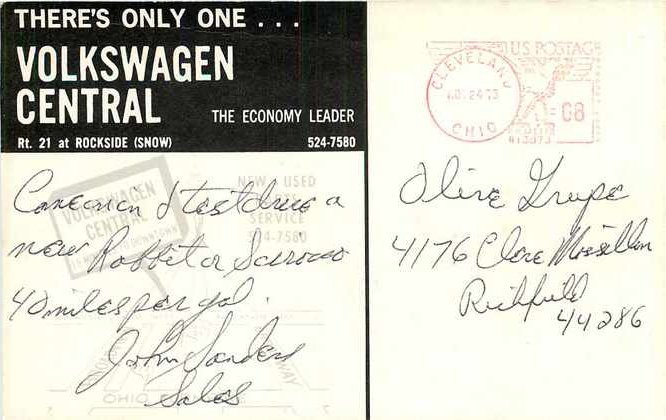 THERE'S ONLY ONE . . .
VOLKSWAGEN
CENTRAL
THE ECONOMY LEADER
Rt. 21 at ROCKSIDE (SNOW)
524-7580
VOLKSWAGEN
CENTRAL
NEW & USED
SERVICE
524-7580
Come in & test drive a
new Rabbit or Scirocco
40 miles per gal.
John Sanders
Sales
OHIO
CLEVELAND
24
OHIO
U.S. POSTAGE
08
Olive Grupe
4176 Clare
Richfield
44286